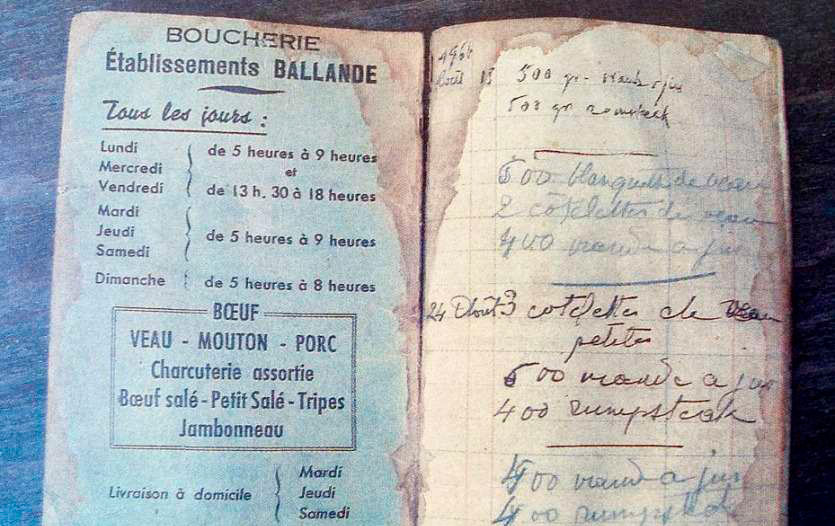 BOUCHERIE
Établissements BALLANDE
Tous les jours :
Lundi
Mercredi
Vendredi
de 5 heures à 9 heures
et
de 13 h. 30 à 18 heures
Mardi
Jeudi
Samedi
de 5 heures à 9 heures
Dimanche
de 5 heures à 8 heures
BŒUF
VEAU - MOUTON - PORC
Charcuterie assortie
Bœuf salé - Petit Salé - Tripes
Jambonneau
Livraison à domicile
Mardi
Jeudi
Samedi
Août
500 gr
500 gr
500 blanquette de veau
2 cotelettes de veau
400 viande a jus
24 Août 3 cotelettes de veau
petites
500 viande a jus
400 rumpsteak
400 viande a jus
400 rumpsteak